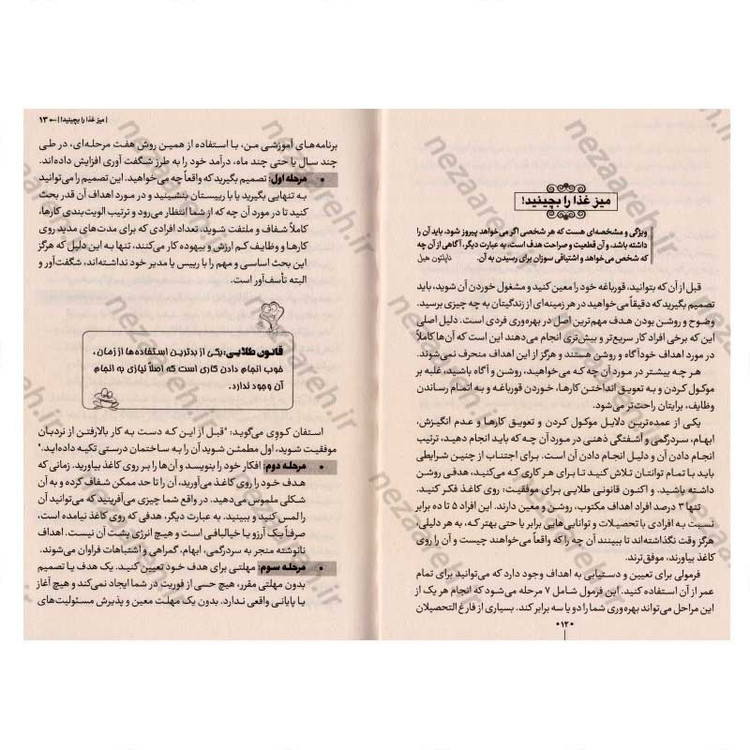 میز غذا را بچینید!
ویژگی و مشخصه‌ای هست که هر شخصی اگر می‌خواهد پیروز شود، باید آن را
داشته باشد، و آن قطعیت و صراحت هدف است، به عبارت دیگر، آگاهی از آن چه
که شخص می‌خواهد و اشتیاقی سوزان برای رسیدن به آن. ناپلئون هیل
قبل از آن که بتوانید، قورباغه خود را معین کنید و مشغول خوردن آن شوید، باید
تصمیم بگیرید که دقیقاً می‌خواهید در هر زمینه‌ای از زندگیتان به چه چیزی برسید.
وضوح و روشن بودن هدف مهم‌ترین اصل در بهره‌وری فردی است. دلیل اصلی
این که برخی افراد کار سریع‌تر و بیش‌تری انجام می‌دهند این است که آن‌ها کاملاً
در مورد اهداف خودآگاه و روشن هستند و هرگز از این اهداف منحرف نمی‌شوند.
هر چه بیشتر در مورد آن چه که می‌خواهید، روشن و آگاه باشید، غلبه بر
موکول کردن و به تعویق انداختن کارها، خوردن قورباغه و به اتمام رساندن
وظایف، برایتان راحت‌تر می‌شود.
یکی از عمده‌ترین دلایل موکول کردن و تعویق کارها و عدم انگیزش،
ابهام، سردرگمی و آشفتگی ذهنی در مورد آن چه که باید انجام دهید، ترتیب
انجام دادن آن و دلیل انجام دادن آن است. برای اجتناب از چنین شرایطی
باید با تمام توانتان تلاش کنید تا برای هر کاری که می‌کنید، هدفی روشن
داشته باشید. و اکنون قانونی طلایی برای موفقیت، روی کاغذ فکر کنید.
تنها ۳ درصد افراد اهداف مکتوب، روشن و معین دارند. این افراد ۵ تا ده برابر
نسبت به افرادی با تحصیلات و توانایی هایی برابر یا حتی بهتر که، به هر دلیلی،
هرگز وقت نگذاشته‌اند تا ببینند آن چه را که واقعاً می‌خواهند چیست و آن را روی
کاغذ بیاورند، موفق‌ترند.
فرمولی برای تعیین و دستیابی به اهداف وجود دارد که می‌توانید برای تمام
عمر از آن استفاده کنید. این فرمول شامل ۷ مرحله می‌شود که انجام هر یک از
این مراحل می‌تواند بهره‌وری شما را دو یا سه برابر کند. بسیاری از فارغ التحصیلان
•۱۲•
| میز غذا را بچینید! | ← ۱۳
برنامه‌های آموزشی من، با استفاده از همین روش هفت مرحله‌ای، در طی
چند سال یا حتی چند ماه، درآمد خود را به طرز شگفت آوری افزایش داده‌اند.
• مرحله اول: تصمیم بگیرید که واقعاً چه می‌خواهید. این تصمیم را می‌توانید
به تنهایی بگیرید یا با رییستان بنشینید و در مورد اهداف آن قدر بحث
کنید تا در مورد آن چه که از شما انتظار می‌رود و ترتیب الویت‌بندی کارها،
کاملاً شفاف و ملتفت شوید. تعداد افرادی که برای مدت‌های مدید روی
کارها و وظایف کم ارزش و بیهوده کار می‌کنند، تنها به این دلیل که هرگز
این بحث اساسی و مهم را با رییس یا مدیر خود نداشته‌اند، شگفت‌آور و
البته تأسف‌آور است.
قانون طلایی: یکی از بدترین استفاده‌ها از زمان،
خوب انجام دادن کاری است که اصلاً نیازی به انجام
آن وجود ندارد.
استفان کووی می‌گوید: "قبل از این که دست به کار بالارفتن از نردبان
موفقیت شوید، اول مطمئن شوید آن را به ساختمان درستی تکیه داده‌اید."
• مرحله دوم: افکار خود را بنویسد و آن‌ها را بر روی کاغذ بیاورید. زمانی که
هدف خود را روی کاغذ می‌آورید، آن را تا حد ممکن شفاف کرده و به آن
شکلی ملموس می‌دهید. در واقع شما چیزی می‌آفرینید که می‌توانید آن
را لمس کنید و ببینید. به عبارت دیگر، هدفی که روی کاغذ نیامده است،
صرفاً یک آرزو یا خیالبافی است و هیچ انرژی پشت آن نیست. اهداف
نانوشته منجر به سردرگمی، ابهام، گمراهی و اشتباهات فراوان می‌شوند.
• مرحله سوم: مهلتی برای هدف خود تعیین کنید. یک هدف یا تصمیم
بدون مهلتی مقرر، هیچ حسی از فوریت در شما ایجاد نمی‌کند و هیچ آغاز
یا پایانی واقعی ندارد. بدون یک مهلت معین و پذیرش مسئولیت‌های
nezaareh.ir